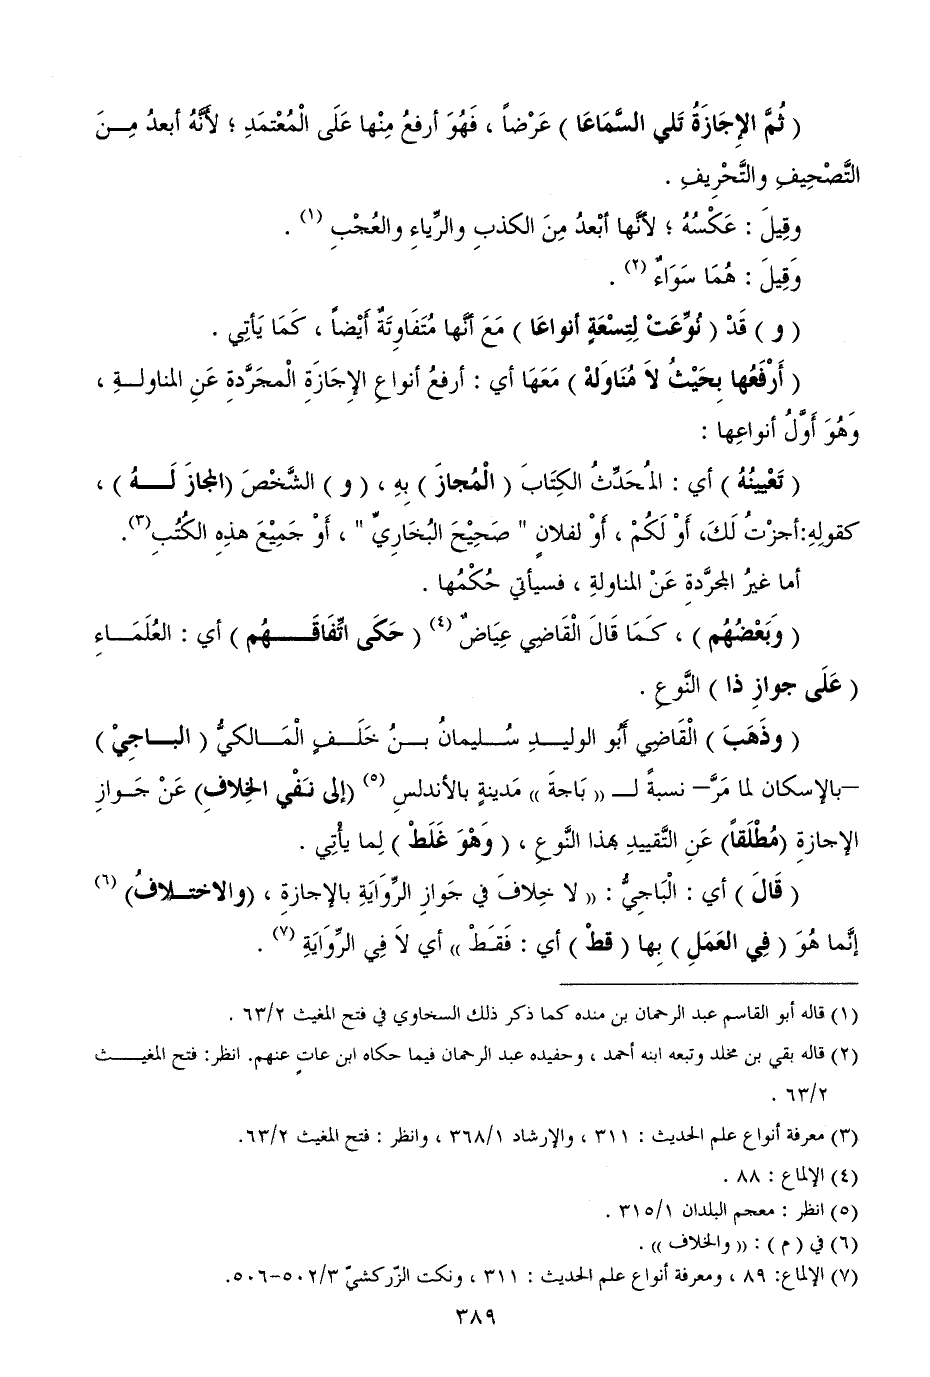 ( ثُمَّ الإِجَازَةُ تَلي السَّمَاعَا ) عَرْضاً ، فَهُوَ أرفعُ مِنْها عَلَى الْمُعْتَمَدِ ؛ لأنَّهُ أبعدُ مِـنَ
التَّصْحِيفِ والتَّحْرِيفِ .
وقِيلَ : عَكْسُهُ ؛ لأنَّها أبْعدُ مِنَ الكذبِ والرِّياءِ والعُجْبِ (١) .
وَقِيلَ : هُمَا سَوَاءٌ (٢) .
( و ) قَدْ ( نُوِّعَتْ لِتِسْعَةٍ أنواعَا ) مَعَ أنَّها مُتَفَاوِتَةٌ أَيْضاً ، كَمَا يَأتِي .
( أَرْفَعُها بِحَيْثُ لاَ مُنَاوَلَهْ ) مَعَهَا أي : أرفعُ أنواعِ الإجَازةِ الْمجَرَّدة عَنِ المناولـةِ ،
وَهُوَ أَوَّلُ أنواعِها :
( تَعْيينُهُ ) أي : المُحَدِّثُ الكِتَابَ ( الْمُجازَ ) بِهِ ، ( و ) الشَّخْصَ (المجازَ لَـــهُ ) ،
كقولِهِ:أجزْتُ لَكَ، أَوْ لَكُمْ ، أَوْ لفلانٍ " صَحِيْحَ البُخَارِيِّ " ، أَوْ جَمِيْعَ هذِهِ الكُتُبِ(٣).
أما غيرُ المجرَّدةِ عَنْ المناولةِ ، فسيأتي حُكْمُها .
( وَبَعْضُهُم ) ، كَمَا قَالَ الْقَاضِي عِيَاضٌ (٤) ( حَكَى اتِّفَاقَـــهُم ) أي : العُلَمَـاءِ
( عَلَى جوازِ ذا ) النَّوعِ .
( وذَهَبَ ) القَاضِي أَبُو الوليـدِ سُـليمانُ بـنُ خَلَـفٍ الْمَـالكيُّ ( البـاجِيْ )
–بالإسكان لما مَرَّ– نسبةً لـ (( بَاجةَ )) مَدينةٍ بالأندلسِ (٥) (إلى نَفْي الخِلافِ) عَنْ جَـوازِ
الإجازةِ (مُطْلَقاً) عَنِ التَّقييدِ بهذا النَّوعِ ، ( وَهْوَ غَلَطْ ) لِما يأْتِي .
( قَالَ ) أي : الْبَاجِيُّ : (( لا خِلافَ في جَوازِ الرِّوَايَةِ بالإجازةِ ، (والاختـلافُ) (٦)
إنَّما هُوَ ( فِي العَمَلِ ) بِها ( قطْ ) أي : فَقَطْ )) أي لاَ فِي الرِّوَايَةِ (٧) .
(١) قاله أبو القاسم عبد الرحمان بن منده كما ذكر ذلك السخاوي في فتح المغيث ٦٣/٢ .
(٢) قاله بقي بن مخلد وتبعه ابنه أحمد ، وحفيده عبد الرحمان فيما حكاه ابن عاتٍ عنهم. انظر: فتح المغيـــث
٦٣/٢ .
(٣) معرفة أنواع علم الحديث : ٣١١ ، والإرشاد ٣٦٨/١ ، وانظر : فتح المغيث ٦٣/٢.
(٤) الإلماع : ٨٨ .
(٥) انظر : معجم البلدان ٣١٥/١ .
(٦) في ( م ) : (( والخلاف )) .
(٧) الإلماع: ٨٩ ، ومعرفة أنواع علم الحديث : ٣١١ ، ونكت الزّركشيّ ٥٠٢/٣-٥٠٦.
٣٨٩